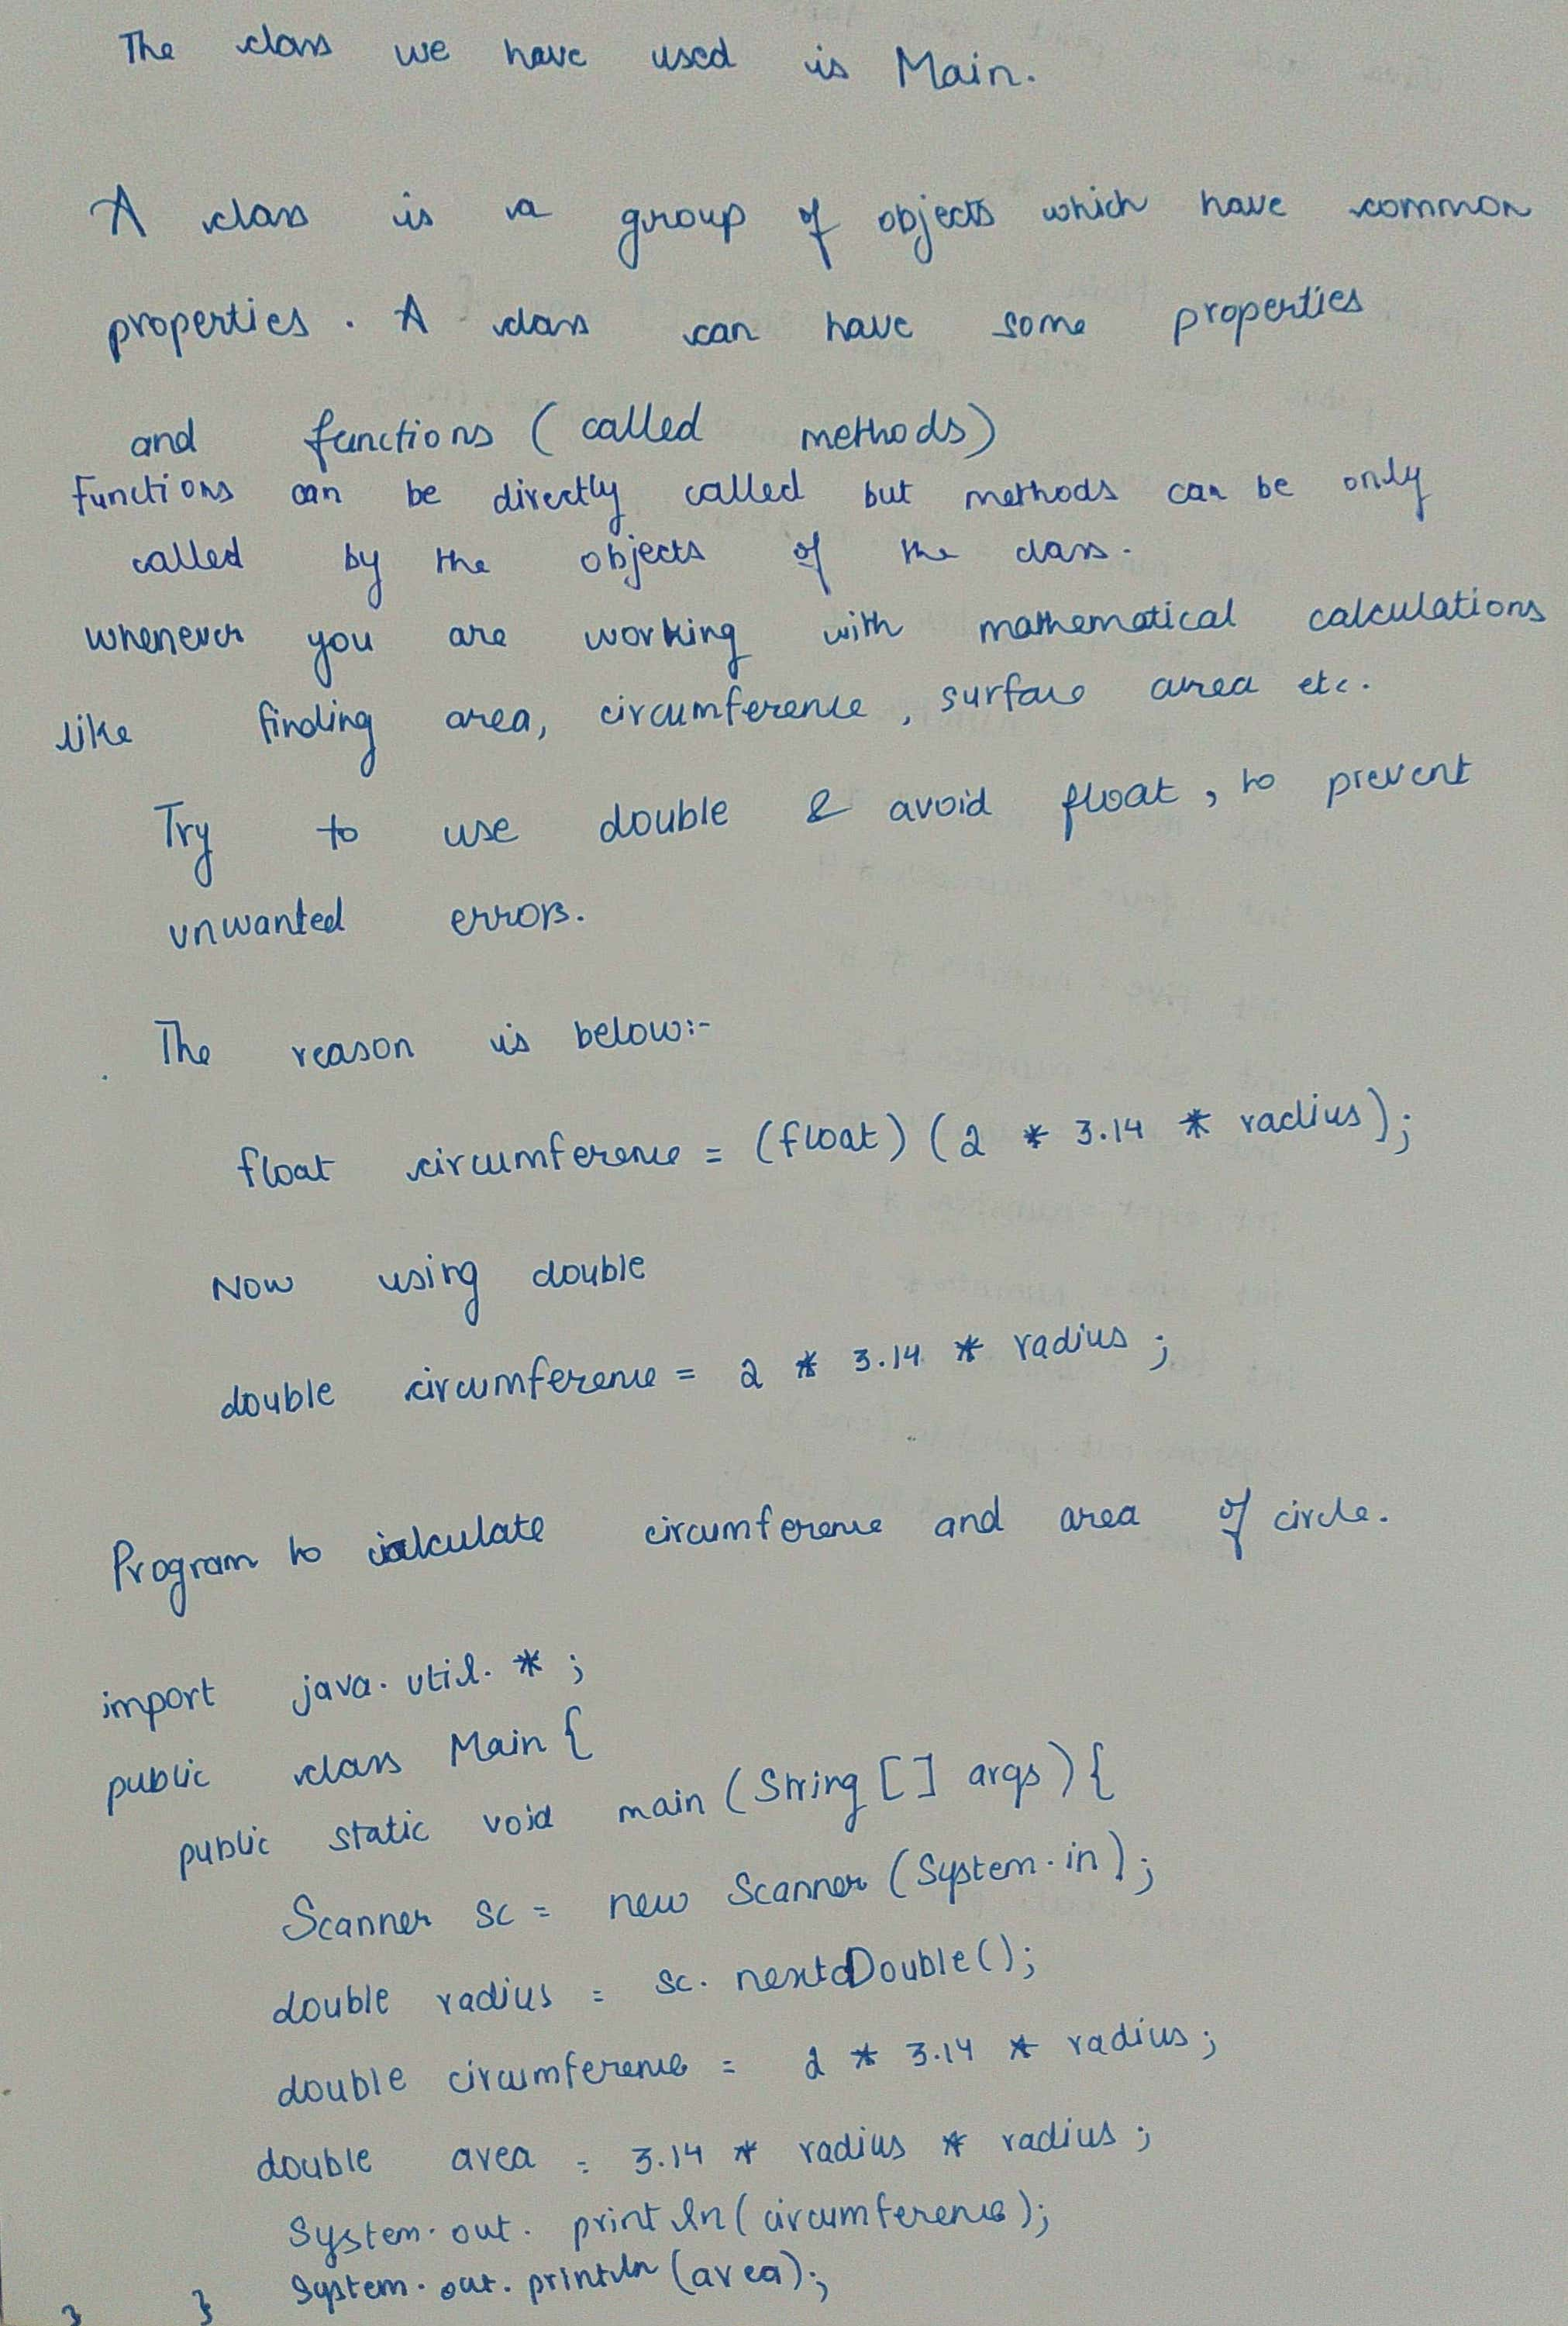 The class we have used is Main.
A class is a group of objects which have common
properties. A class can have some properties
and functions (called methods)
Functions can be directly called but methods can be only
called by the objects of the class.
whenever you are working with mathematical calculations
like finding area, circumference, surface area etc.
Try to use double & avoid float, to prevent
unwanted errors.
The reason is below:-
float circumference = (float) (2 * 3.14 * radius);
Now using double
double circumference = 2 * 3.14 * radius;
Program to calculate circumference and area of circle.
import java.util.*;
public class Main {
public static void main (String [] args) {
Scanner sc = new Scanner (System.in);
double radius = sc. nextDouble();
double circumference = 2 * 3.14 * radius;
double area = 3.14 * radius * radius;
System.out. println(circumference);
System.out.println (area);
} }